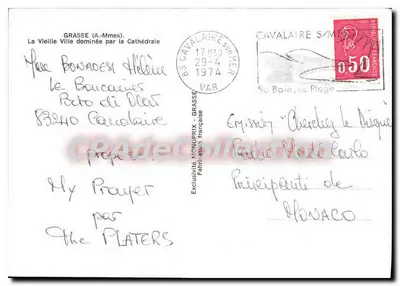 GRASSE (A.-Mmes).
La Vieille Ville dominée par la Cathédrale
Mme BONADESI Hélène
Le Boucanier
83240 Cavalaire
propose :
My Prayer
par
The PLATERS
Exclusivité MONOPRIX - GRASSE
Fabrication française
83 CAVALAIRE SUR MER
29-4
1974
VAR
CAVALAIRE S/MER
Sa Baie, sa Plage
0,50
Emission "Cherchez le Disque"
Radio Monte Carlo
Principauté de
MONACO